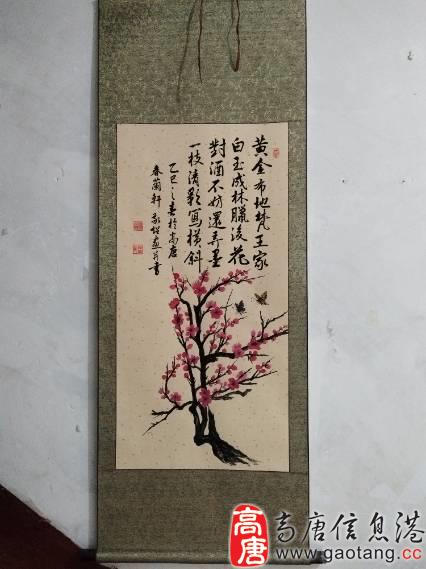 黄金布地梵王家
白玉成林臘後花
對酒不妨還弄墨
一枝清影寫橫斜
乙巳之春於高唐
春蘭軒
畫并書
高唐
高唐信息港
www.gaotang.cc